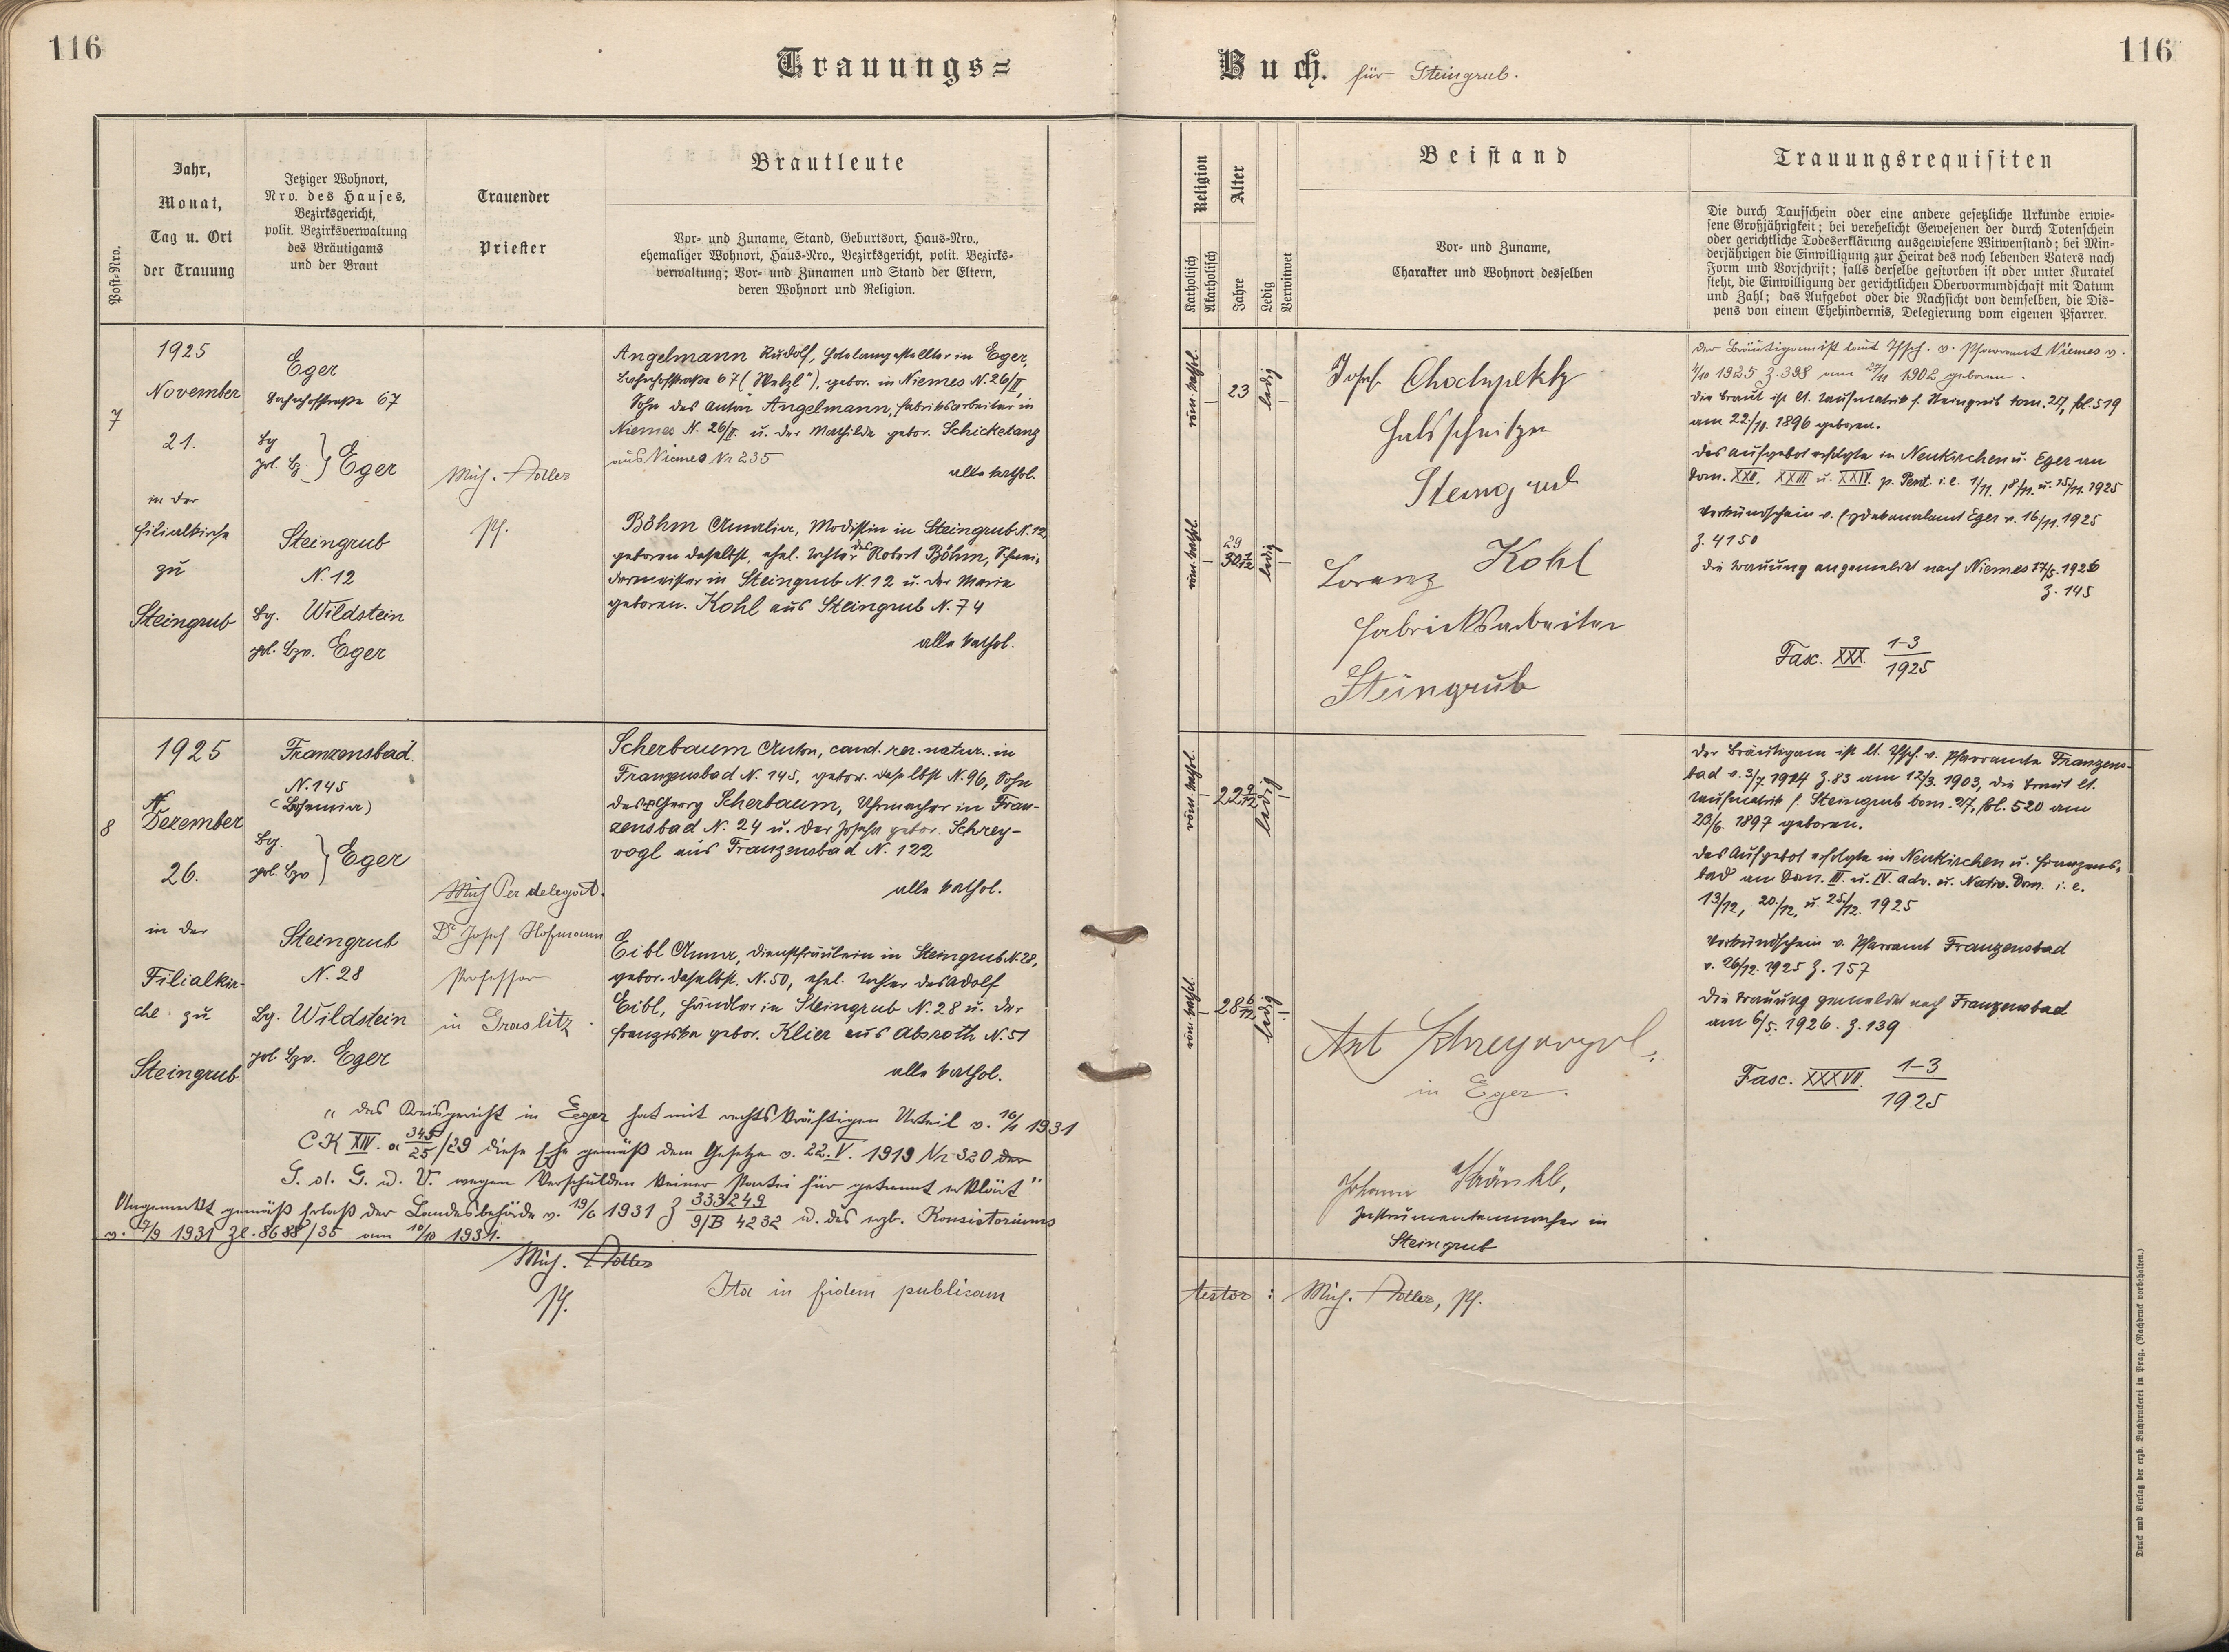 116
Trauungs=
Buch. für Steingrub.
116
Post-Nro.
Jahr,
Monat,
Tag u. Ort
der Trauung
Jetziger Wohnort,
Nro. des Hauses,
Bezirksgericht,
polit. Bezirksverwaltung
des Bräutigams
und der Braut
Trauender
Priester
Brautleute
Vor- und Zuname, Stand, Geburtsort, Haus-Nro.,
ehemaliger Wohnort, Haus-Nro., Bezirksgericht, polit. Bezirks-
verwaltung; Vor- und Zunamen und Stand der Eltern,
deren Wohnort und Religion.
Religion
Katholisch
Akatholisch
Alter
Jahre
Ledig
Verwitwet
Beistand
Vor- und Zuname,
Charakter und Wohnort desselben
Trauungsrequisiten
Die durch Taufschein oder eine andere gesetzliche Urkunde erwie-
sene Großjährigkeit; bei verehelicht Gewesenen der durch Totenschein
oder gerichtliche Todeserklärung ausgewiesene Witwenstand; bei Min-
derjährigen die Einwilligung zur Heirat des noch lebenden Vaters nach
Form und Vorschrift; falls derselbe gestorben ist oder unter Kuratel
steht, die Einwilligung der gerichtlichen Obervormundschaft mit Datum
und Zahl; das Aufgebot oder die Nachsicht von demselben, die Dis-
pens von einem Ehehindernis, Delegierung vom eigenen Pfarrer.
7
1925
November
21.
in der
Filialkirche
zu
Steingrub
Eger
Bahnhofstraße 67
Bg.
pol. Bz. } Eger
Steingrub
N. 12
Bg. Wildstein
pol. Bzv. Eger
Mich. Adler
Pf.
Angelmann Rudolf, Hotelangestellter in Eger,
Bahnhofstraße 67 ("Wetzl"), gebor. in Niemes N. 26/II,
Sohn des Anton Angelmann, Fabriksarbeiter in
Niemes N. 26/II. u. der Mathilde gebor. Schicketanz
aus Niemes Nr 235
alle kathol.
Böhm Amalia, Modistin in Steingrub N. 12
geboren daselbst, ehel. Tochter des Robert Böhm, Schnei-
dermeister in Steingrub N. 12 u. der Maria
geboren. Kohl aus Steingrub N. 74
alle kathol.
röm. kathol.
23
ledig
röm. kathol.
29
ledig
Josef Chochpletz
Holzschnitzer
Steingrub
Lorenz Kohl
Fabricksarbeiter
Steingrub
der Bräutigam ist laut Tfsch. v. Pfarramt Niemes v.
4/10 1925 Z. 398 am 27/11 1902 geboren.
die Braut ist lt. Taufmatrik f. Steingrub tom. 27, fol. 519
am 22/11. 1896 geboren.
das Aufgebot erfolgte in Neukirchen u. Eger an
Dom. XXII. XXIII u. XXIV. p. Pent. i. e. 1/11. 8/11. u. 15/11. 1925
Verkündschein v. Erzdekanalamt Eger v. 16/11. 1925
Z. 4150
die Trauung angemeldet nach Niemes 17/5. 1926
Z. 145
Fasc. XXX. 1-3/1925
8
1925
Dezember
26.
in der
Filialkir-
che zu
Steingrub
Franzensbad
N. 145
(Bohemia)
Bg.
pol. Bzv } Eger
Steingrub
N. 28
Bg. Wildstein
pol. Bzv. Eger
Per delegat.
Dr Josef Hofmann
Professor
in Graslitz.
Scherbaum Anton, cand. rer. natur. in
Franzensbad N. 145, gebor. daselbst N. 96, Sohn
des † Georg Scherbaum, Uhrmacher in Fran-
zensbad N. 24 u. der Josefa gebor. Schrey-
vogl aus Franzensbad N. 122
alle kathol.
Eibl Anna, Dienstfräulein in Steingrub N. 28,
gebor. daselbst. N. 50, ehel. Tochter des Adolf
Eibl, Händler in Steingrub N. 28 u. der
Franziska gebor. Klier aus Absroth N. 51
alle kathol.
röm. kathol.
22 9/12
ledig
röm. kathol.
28 6/12
ledig
Ant Schreyvogel,
in Eger.
Johann Kränkl,
Instrumentenmacher in
Steingrub
der Bräutigam ist lt. Tfsch. v. Pfarramte Franzens-
bad v. 3/7 1914 Z. 83 am 12/3. 1903, die Braut lt.
Taufmatrik f. Steingrub tom. 27, fol. 520 am
23/6. 1897 geboren.
das Aufgebot erfolgte in Neukirchen u. Franzens-
bad an Dom. III. u. IV. adv. u. Nativ. Dom. i. e.
13/12, 20./12, u. 25./12. 1925
Verkündschein v. Pfarramt Franzensbad
v. 26/12. 1925 Z. 157
die Trauung gemeldet nach Franzensbad
am 6/5. 1926. Z. 139
Fasc. XXXVII. 1-3/1925
"das Kreisgericht in Eger hat mit rechtskräftigen Urteil v. 16/1 1931
CK XIV. a 345/25/29 diese Ehe gemäß dem Gesetze v. 22. V. 1919 Nr 320 der
S. d. G. u. V. wegen Verschulden keiner Partei für getrennt erklärt"
Angemerkt gemäß Erlaß der Landesbehörde v. 19/6 1931 Z 333249/9/B 4232 u. des erzb. Konsistoriums
v. 17/9 1931 Zl. 8688/35 am 10/10 1931.
Mich. Adler
Pf.
Ita in fidem publicam
testor: Mich. Adler, Pf.
Druck und Verlag der erzb. Buchdruckerei in Prag. (Nachdruck vorbehalten.)